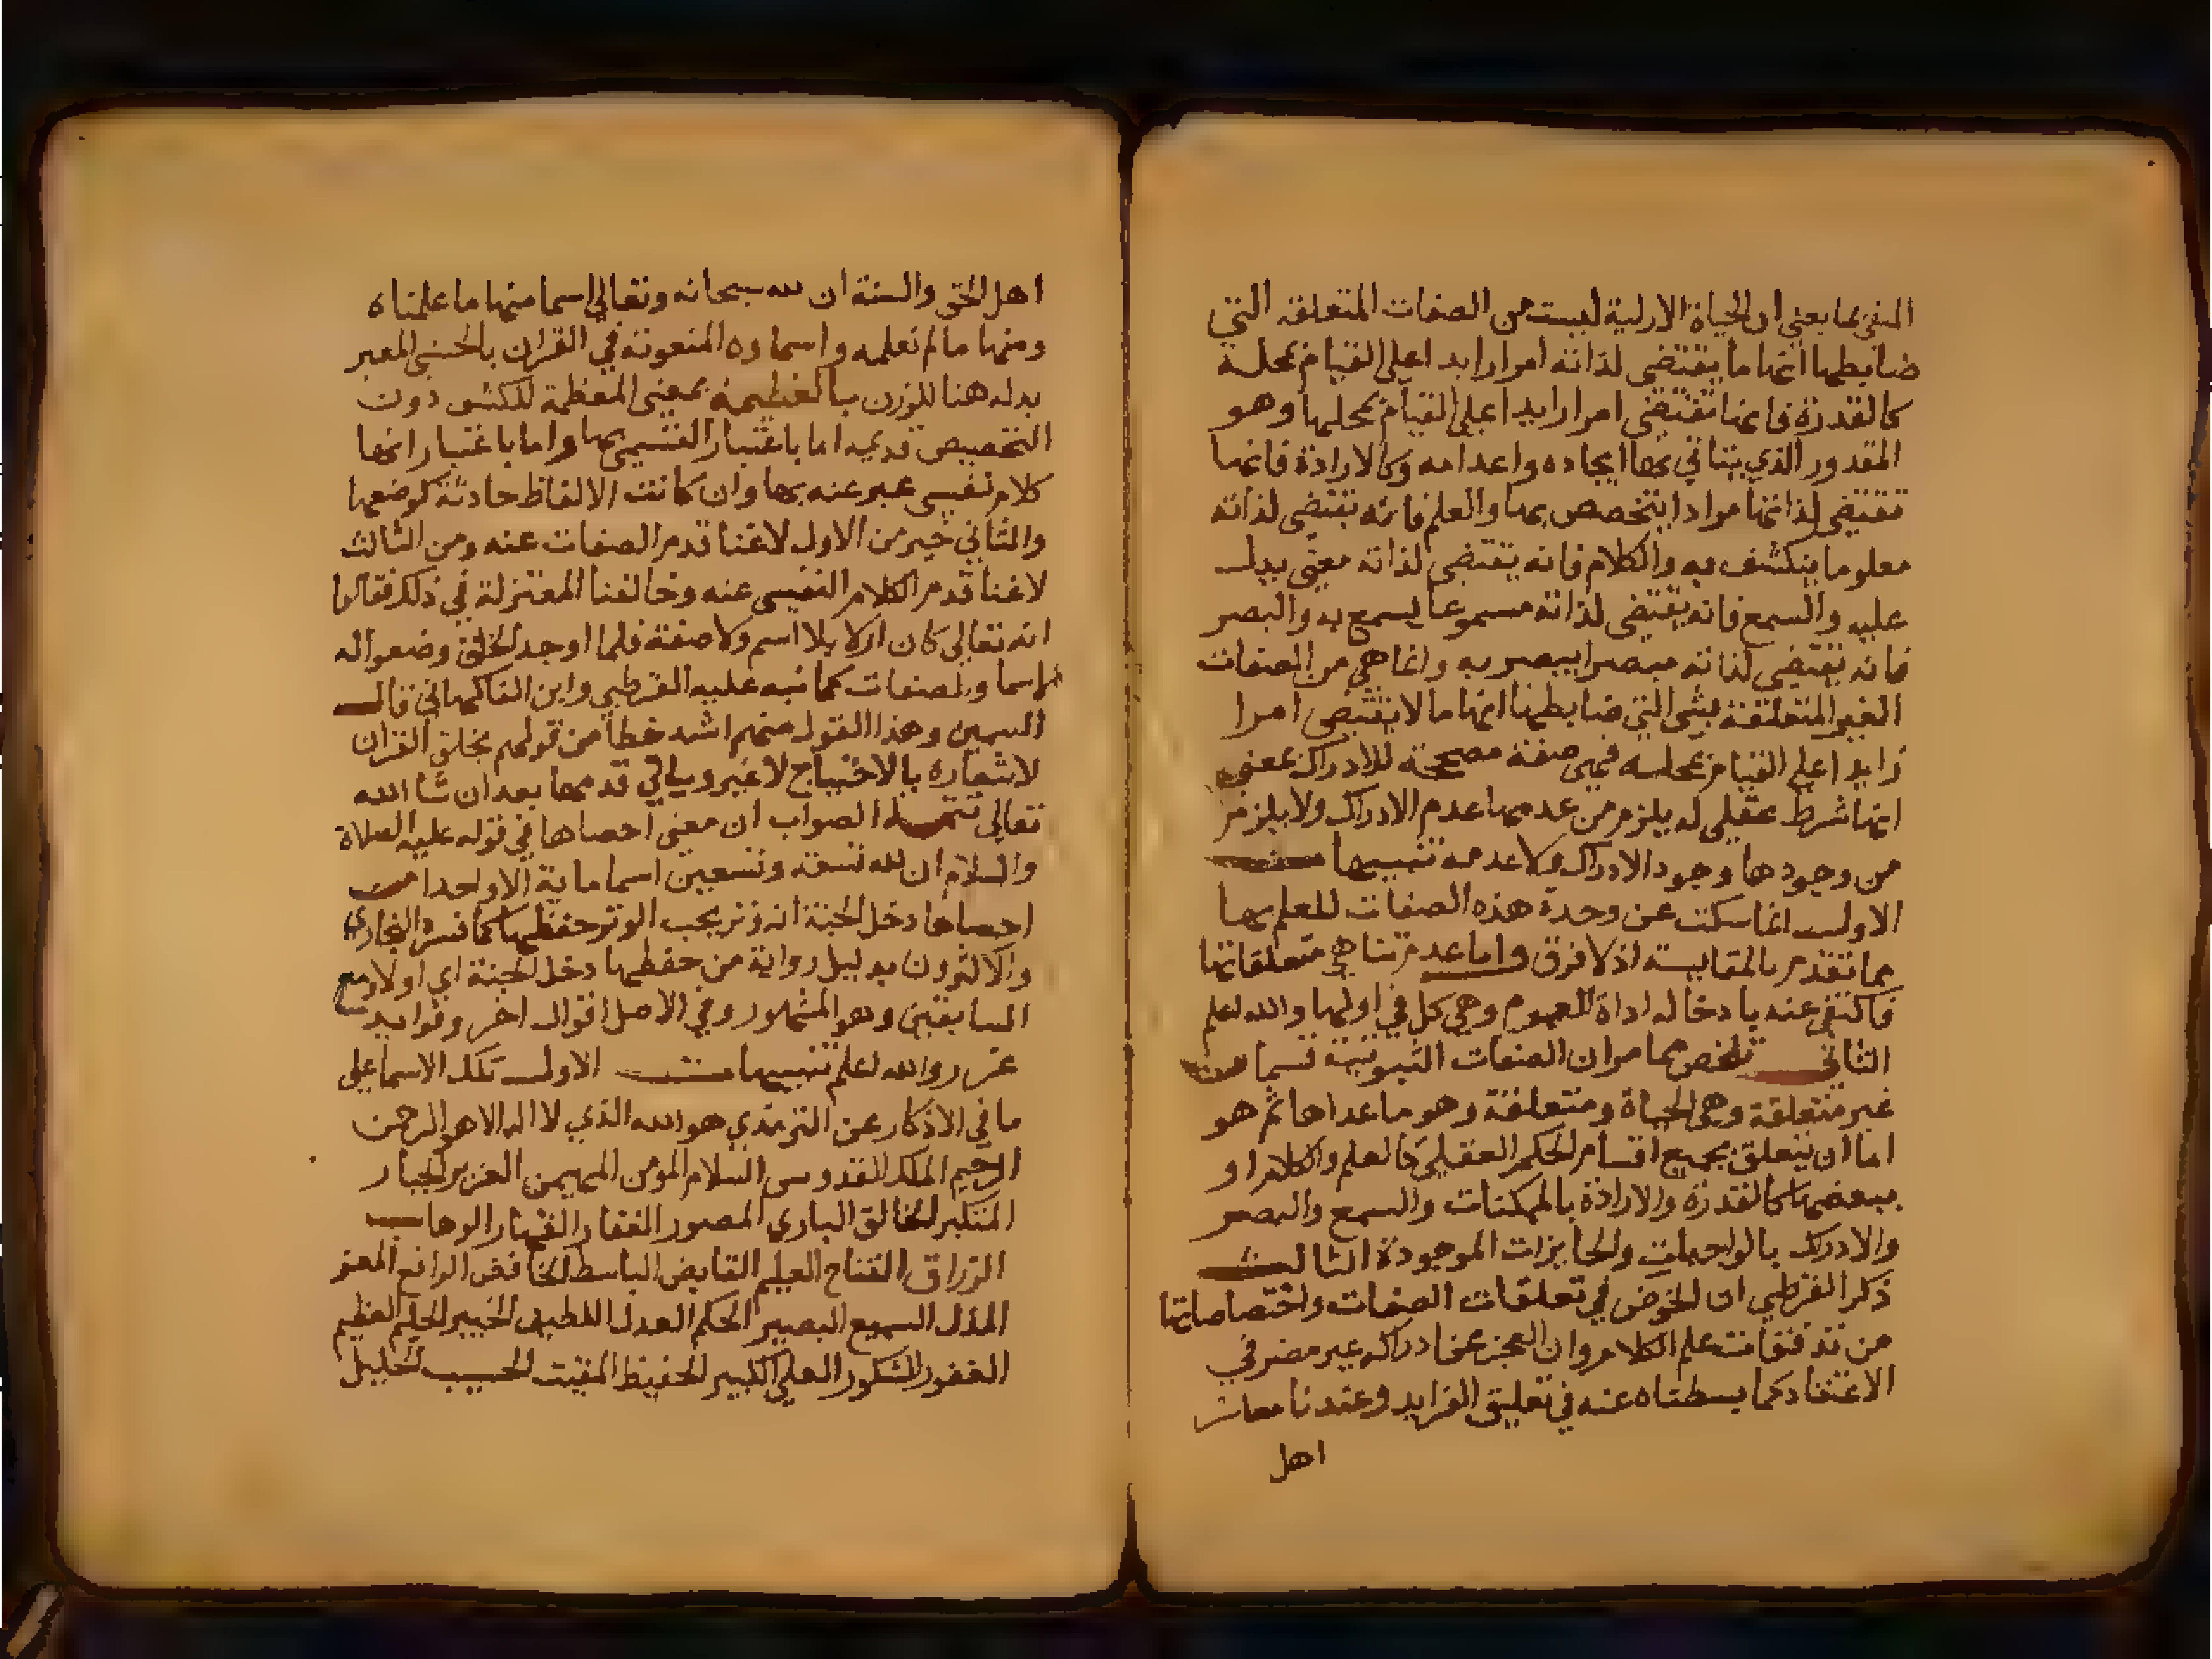 المنفي بما يعني ان الحياة الازلية ليست من الصفات المتعلقة التي
ضابطها انها ما يقتضي لذاته امرا زايدا علي القيام بمحلـه
كالقدرة فانها تقتضي امرا زايدا علي القيام بمحلها وهو
المقدور الذي يتاتي بها ايجاده واعدامه وكالارادة فانها
تقتضي لذاتها مرادا يتخصص بها والعلم فانه يقتضي لذاته
معلوما ينكشف به والكلام فانه يقتضي لذاته معني يدل
عليه والسمع فانه يقتضي لذاته مسموعا يسمع به والبصر
فانه يقتضي لذاته مبصرا يبصر به وانما هي من الصفات
الغير المتعلقة بشي التي ضابطها انها ما لا يقتضي امرا
زايدا علي القيام بمحلـه فهي صفة مصححة للادراك بمعني
انها شرط عقلي له يلزم من عدمها عدم الادراك ولا يلزم من
من وجودها وجود الادراك ولا عدمه تنبيهات
الاول انما سكت عن وحدة هذه الصفات للعلم بها
مما تقدم بالمقايسة اذ لا فرق واما عدم تناهي متعلقاتها
فاكتفي عنه بادخاله اداة العموم وهي كل في اولها والله اعلم
الثاني تلخص مما مر ان الصفات الثبوتية قسمان
غير متعلقة وهي الحياة ومتعلقة وهو ما عداها ثم هو
اما ان يتعلق بجميع اقسام الحكم العقلي كالعلم والكلام او
ببعضها كالقدرة والارادة بالممكنات والسمع والبصر
والادراك بالواجبات والجايزات الموجودة الثالث
ذكر القرطبي ان الخوض في تعلقات الصفات واختصاصاتها
من تدقيقات علم الكلام وان العجز عن ادراكه غير مضر في
الاعتقاد كما بسطناه عنه في تعليق الفرايد وعندنا معاشر
اهل
اهل الحق والسنة ان لله سبحانه وتعالي اسما منها ما علمناه
ومنها ما لم نعلمه واسماوه المنعوتة في القران بالحسني المعبر
بدله هنا للوزن بالعظيمة بمعني المعظمة للكشف دون
التخصيص قديمه اما باعتبار التسمي بها واما باعتبار انها
كلام نفسي عبر عنه بها وان كانت الالفاظ حادثة كوضعها
والثاني خير من الاول لاغنا قدم الصفات عنه ومن الثالث
لاغنا قدم الكلام النفسي عنه وخالفنا المعتزلة في ذلك فقالوا
انه تعالي كان ازلا بلا اسم ولا صفة فلما اوجد الخلق وضعوا له
الاسما والصفات كما نبه عليه القرطبي وابن الفاكهاني قال
السمين وهذا القول منهم اشد خطأ من قولهم بخلق القران
لاشعاره بالاحتياج لاغير وياتي قدمها بعد ان شا الله
تعالي تتمـة الصواب ان معني احصاها في قوله عليه الصلاة
والسلام ان لله تسعة وتسعين اسما ماية الا واحدا من
احصاها دخل الجنة انه وتر يحب الوتر حفظها كما فسر البخاري
والاكثرون بدليل رواية من حفظها دخل الجنة اي اولا مع
السابقين وهو المشهور وفي الاصل اقوال اخر وفوايد
غرر والله اعلم تنبيهات الاول تلك الاسما علي
ما في الاذكار عن الترمذي هو الله الذي لا اله الا هو الرحمن
الرحيم الملك القدوس السلام المومن المهيمن العزيز الجبار
المتكبر الخالق الباري المصور الغفار القهار الوهاب
الرزاق الفتاح العليم القابض الباسط الخافض الرافع المعز
المذل السميع البصير الحكم العدل اللطيف الخبير الحليم العظيم
الغفور الشكور العلي الكبير الحفيظ المقيت الحسيب الجليل